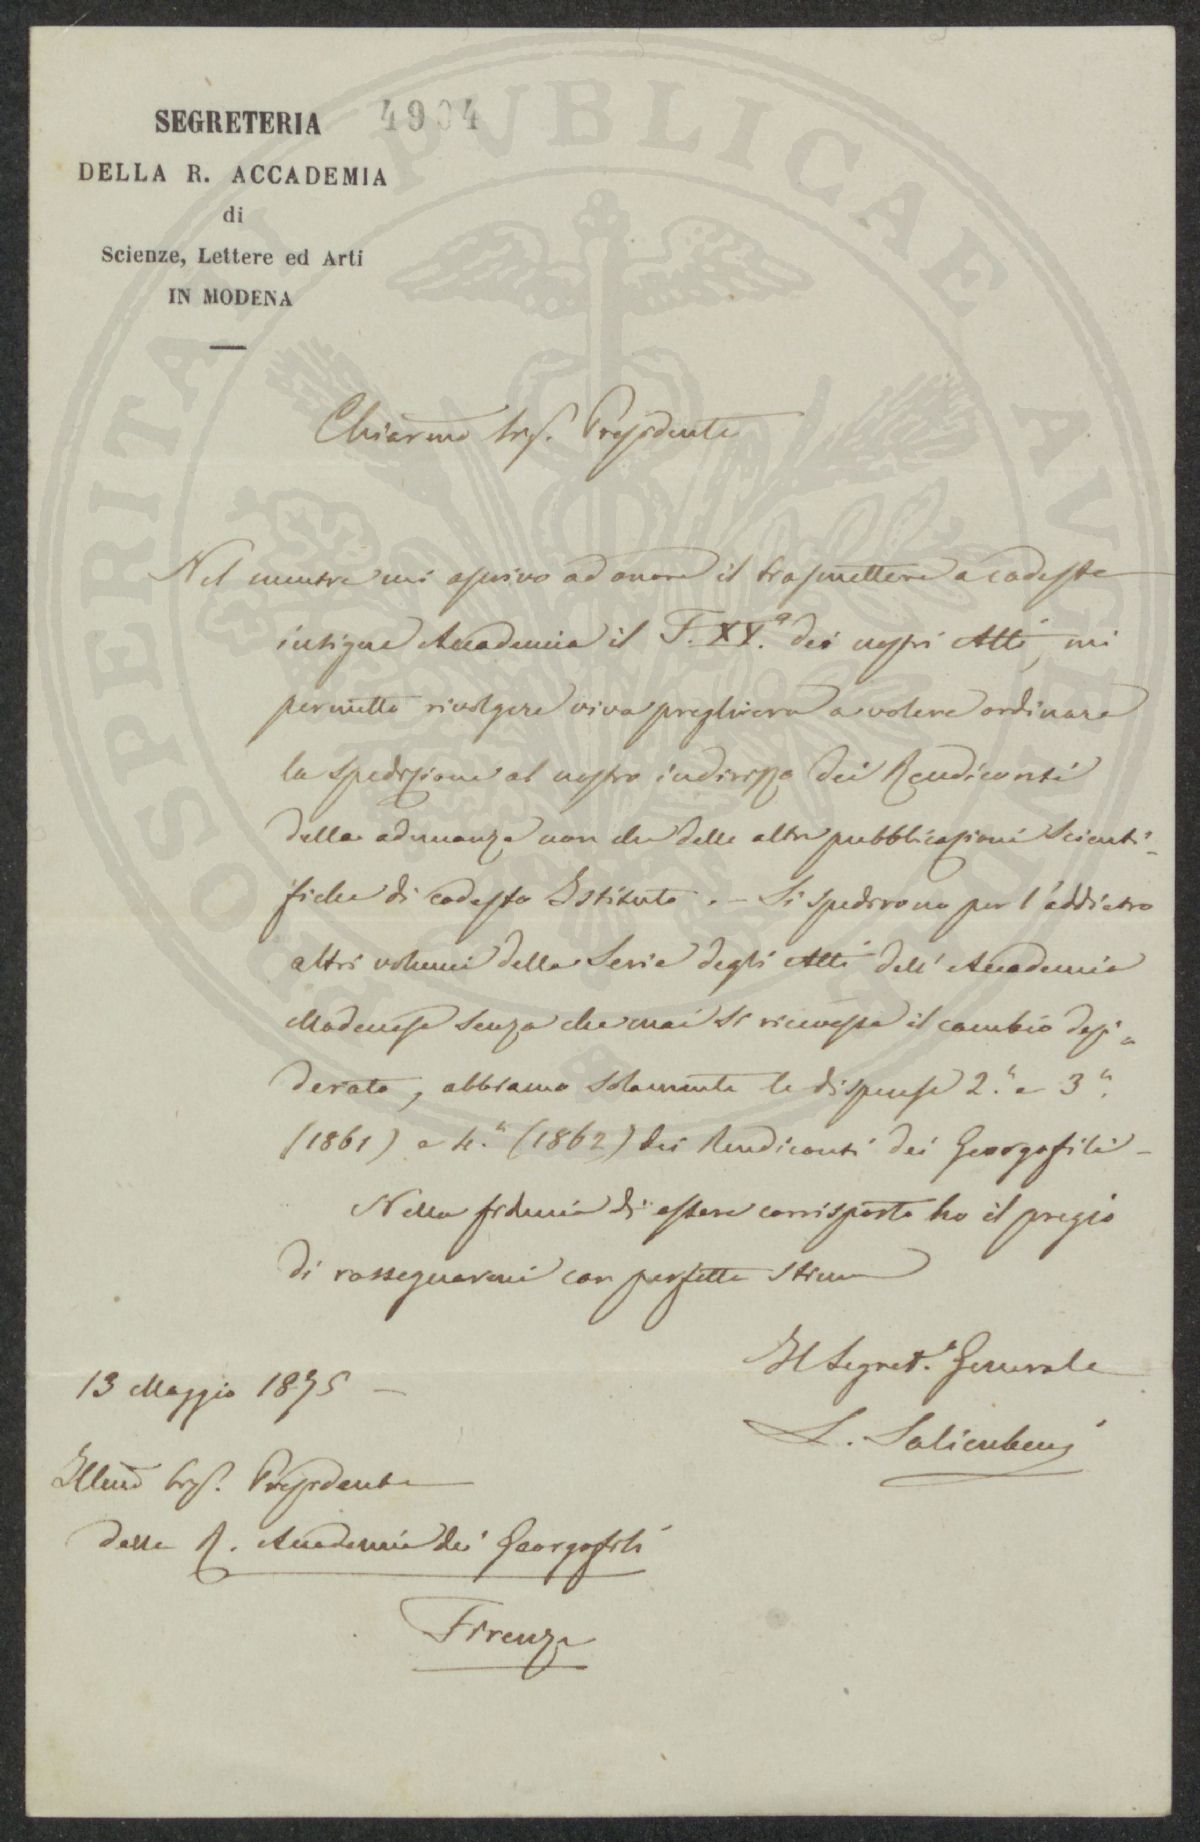 SEGRETERIA 4904
DELLA R. ACCADEMIA
di
Scienze, Lettere ed Arti
IN MODENA
Chiarmo Sigr. Presidente
Nel mentre mi ascrivo ad onore il trasmettere a codesta
insigne Accademia il T. XV.º dei nostri Atti, mi
permetto rivolgere viva preghiera a volere ordinare
la spedizione al nostro indirizzo dei Rendiconti
delle adunanze non che delle altre pubblicazioni Scienti-
fiche di codesto Istituto. - Si spedirono per l'addietro
altri volumi della Serie degli Atti dell'Accademia
Modenese senza che mai si ricevesse il cambio desi-
derato, abbiamo solamente le dispense 2.ª e 3.ª
(1861) e 4.ª (1862) dei Rendiconti dei Georgofili -
Nella fiducia di essere corrisposto ho il pregio
di rassegnarmi con perfetta stima
Il Segret.º Generale
L. Salimbeni
13 Maggio 1875 -
Illmo Sigr. Presidente
della R. Accademia dei Georgofili
Firenze
PROSPERITATI PVBLICAE AVGENDAE